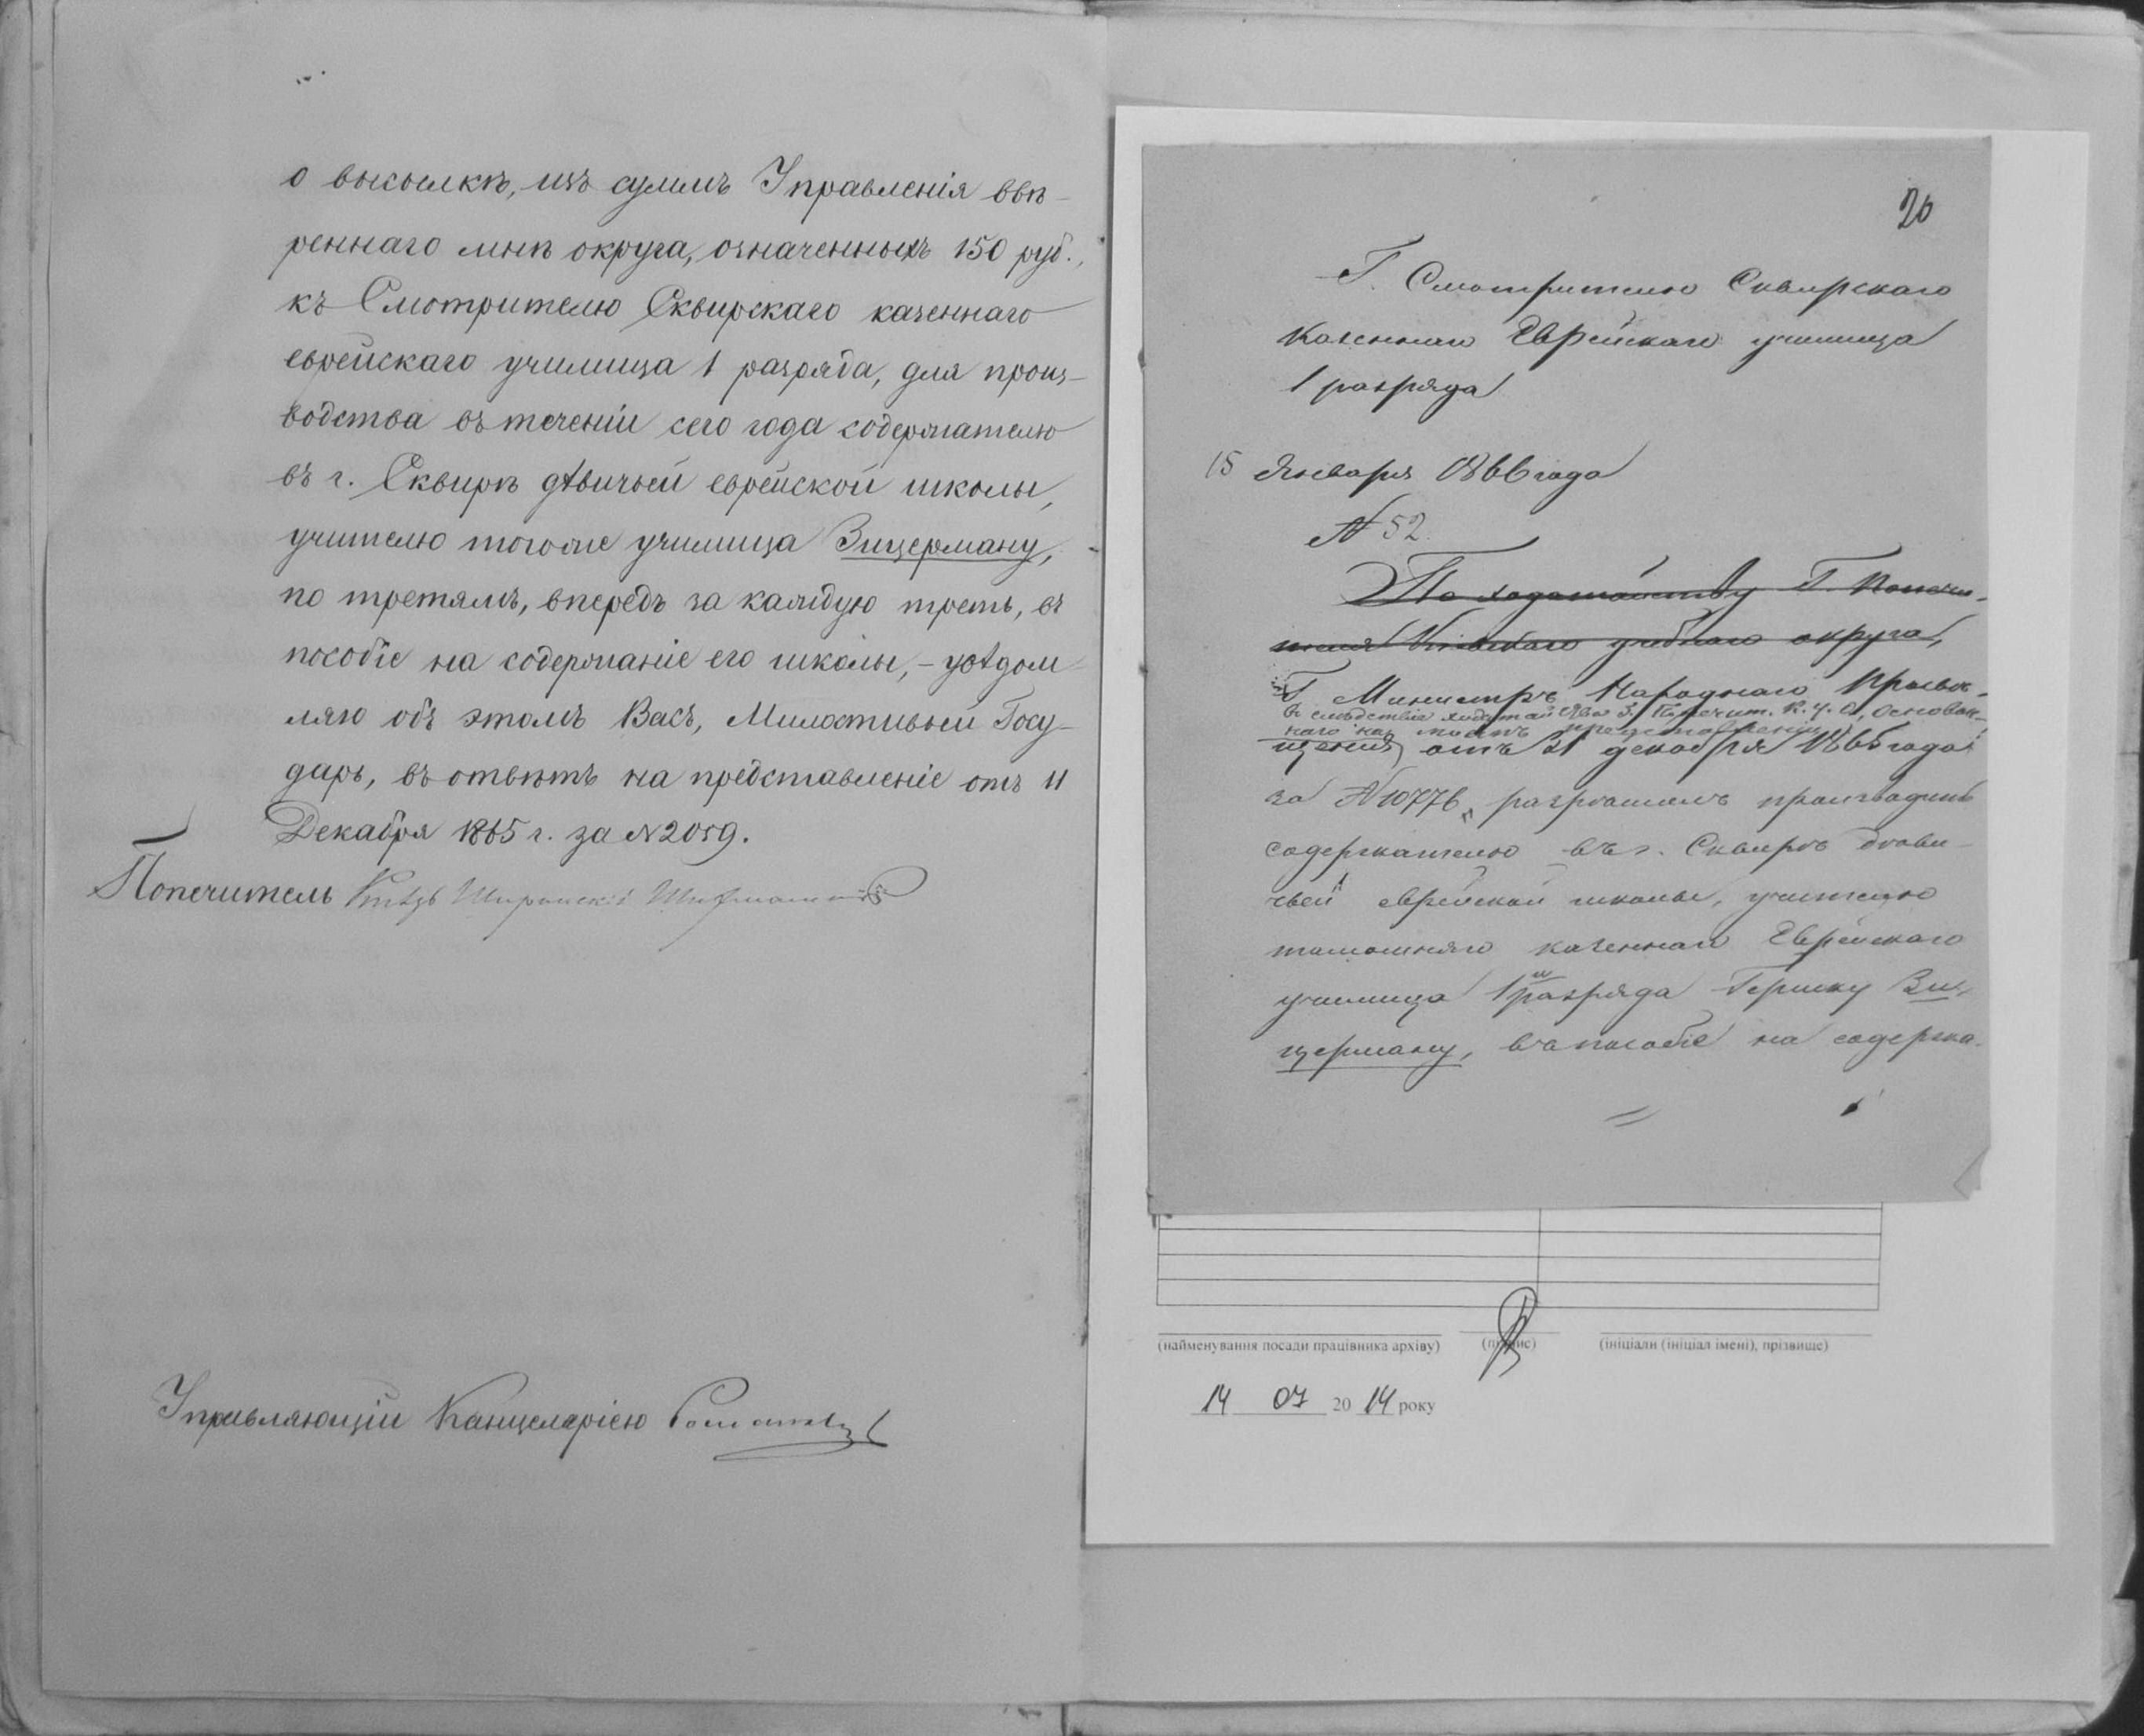 о высылкѣ, изъ суммъ Управленія ввѣ-
реннаго мнѣ округа, означенныхъ 150 руб.,
къ Смотрителю Сквирскаго казеннаго
еврейскаго училища 1 разряда, для произ-
водства въ теченіи сего года содержателю
въ г. Сквирѣ дѣвичьей еврейской школы,
учителю того же училища Зицерману,
по третямъ, впередъ за каждую треть, въ
пособіе на содержаніе его школы, – увѣдом
ляю объ этомъ Васъ, Милостивый Госу-
дарь, въ отвѣтъ на представленіе отъ 11
Декабря 1865 г. за № 2059.
Попечитель Князь Ширинскій Шихматовъ
Управляющій Канцеляріею
20
Г. Смотрителю Сквирскаго
Казеннаго Еврейскаго училища
1 разряда
15 Января 1866 года
№ 52.
По ходатайству Г. Попечи-
теля Кіевскаго учебнаго округа,
Г. Министръ Народнаго Просвѣ-
въ слѣдствіе ходатайства Г. Попечит. К. У. О., основан-
наго на моемъ представленіи,
щенія отъ 21 декабря 1865 года
за № 10776, разрѣшилъ производить
содержателю въ г. Сквирѣ дѣви-
чьей еврейской школы, учителю
тамошняго казеннаго Еврейскаго
училища 1го разряда Гершку Зи-
церману, въ пособіе на содержа-
(найменування посади працівника архіву) (підпис) (ініціали (ініціал імені), прізвище)
14 07 2014 року